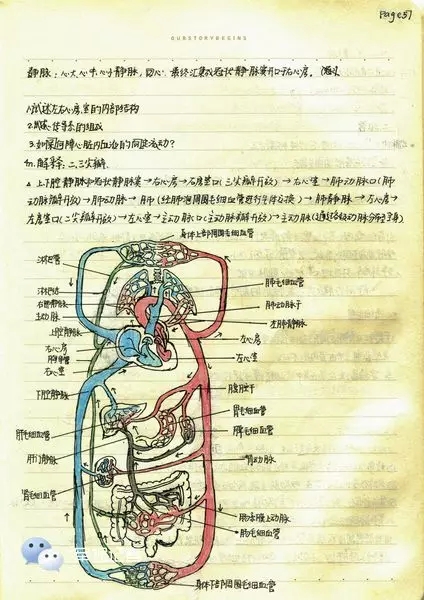 Page 51
OURSTORYBEGINS
静脉：心大、心中、心小静脉，最终汇集成冠状静脉窦开口于右心房。
1.试述左右心房、室的内部结构
2.试述心传导系的组成
3.如何保障心脏内血液的向流动？
m.解释：二、三尖瓣.
△上下腔静脉和冠状静脉窦→右心房→右房室口(三尖瓣开放)→右心室→肺动脉口(肺
动脉瓣开放)→肺动脉→肺(经肺泡周围毛细血管进行气体交换)→肺静脉→左心房→
左房室口(二尖瓣开放)→左心室→主动脉口(主动脉瓣开放)→主动脉(通过各级动脉分布到全身)
身体上部周围毛细血管
淋巴管
淋巴结
右肺静脉
主动脉
上腔静脉
右心房
胸导管
右心室
下腔静脉
肝毛细血管
肝门静脉
肾毛细血管
肺毛细血管
肺动脉干
左肺静脉
左心房
左心室
腹腔干
胃毛细血管
脾毛细血管
肾动脉
肠系膜上动脉
肠毛细血管
身体下部周围毛细血管